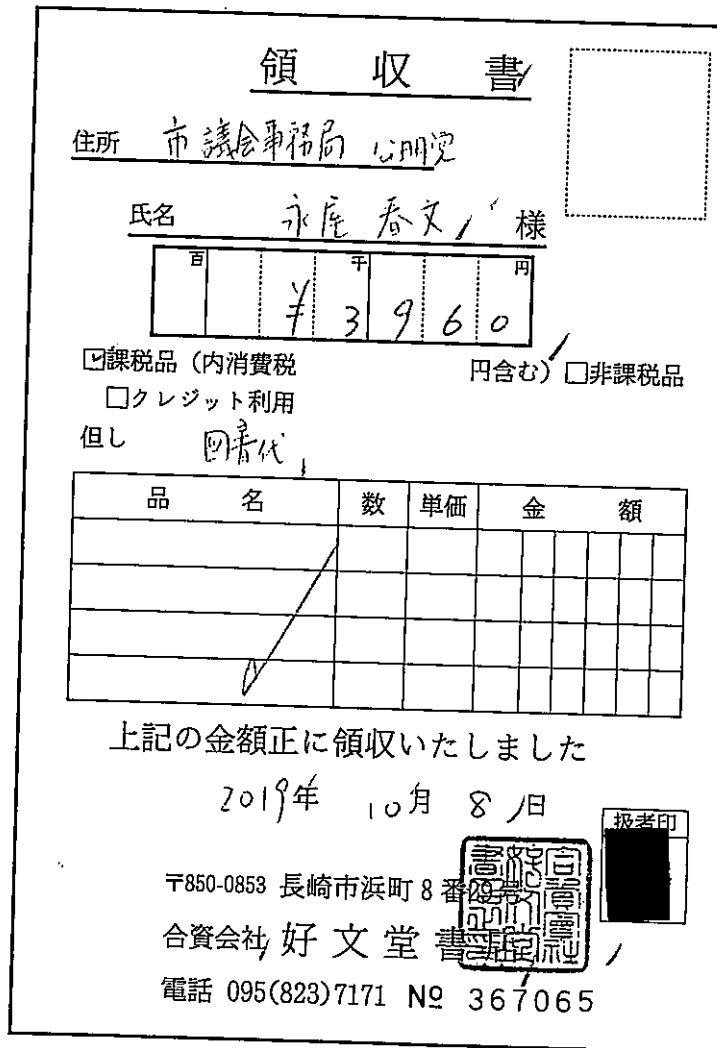 領 収 書
住所 市議会事務局 公明党
氏名 永尾 春文 様
百 千 円
¥3960
☑課税品（内消費税 円含む）□非課税品
□クレジット利用
但し 図書代
品 名 数 単価 金 額
上記の金額正に領収いたしました
2019年 10月 8日
扱者印
〒850-0853 長崎市浜町8番29号
合資会社 好文堂書店
電話 095(823)7171 № 367065